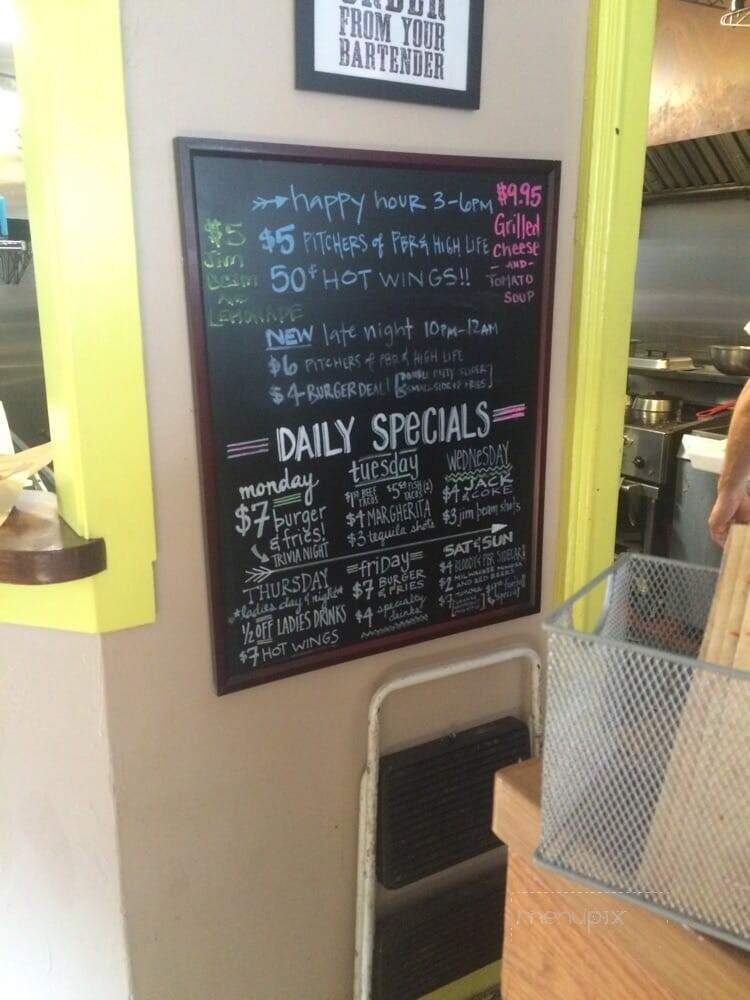 ORDER
FROM YOUR
BARTENDER
happy hour 3-6PM
$5 PITCHERS of PBR & HIGH LIFE
50¢ HOT WINGS!!
$5
Jim
Beam
LEMONADE
$9.95
Grilled
Cheese
-AND-
TOMATO
SOUP
NEW late night 10PM-12AM
$6 PITCHERS of PBR & HIGH LIFE
$4 BURGER DEAL!
DAILY SPECIALS
monday
$7 burger
& fries!
TRIVIA NIGHT
tuesday
BEEF TACOS FISH (2) TACOS
$4 MARGHERITA
$3 tequila shots
WEDNESDAY
$4 JACK & COKE
$3 jim beam shots
THURSDAY
*ladies day & night*
1/2 OFF LADIES DRINKS
$7 HOT WINGS
friday
$7 BURGER & FRIES
$4 specialty drinks!
SAT & SUN
$4 BLOODY & PBR SIDECAR
$2 MILWAUKEE MIMOSA
AND RED BEERS
menupix